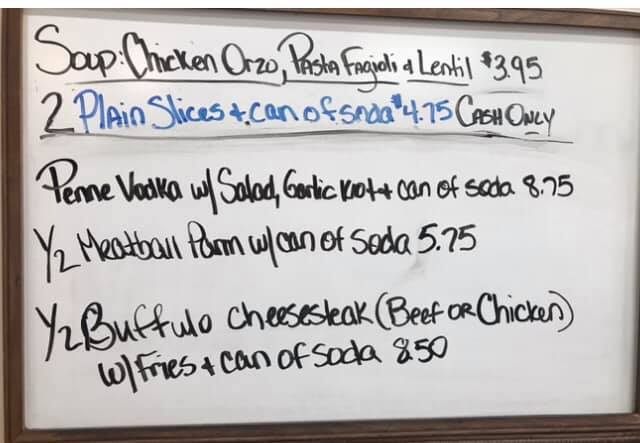 Soup: Chicken Orzo, Pasta Fagioli & Lentil $3.95
2 Plain Slices + can of soda $4.75 Cash Only
Penne Vodka w/ Salad, Garlic Knot + can of soda 8.75
1/2 Meatball Parm w/ can of soda 5.75
1/2 Buffulo Cheesesteak (Beef or Chicken)
w/ Fries + can of soda 8.50